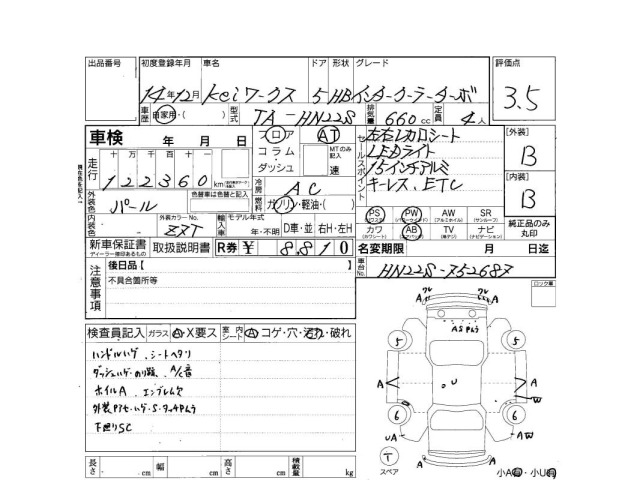 出品番号 初度登録年月 車名 ドア 形状 グレード 評価点
14年12月 Keiワークス 5 HB インタークーラーターボ 3.5
車歴 自家用・( ) 型式 TA-HN22S 排気量 660cc 定員 4人
車検 年 月 日 フロア コラム・ダッシュ AT MTのみ記入 速
セールスポイント 左右レカロシート
LEDライト
15インチアルミ
キーレス、ETC
[外装] B
[内装] B
走行 十万 万 千 百 十 一
122360 km
冷房 AC
燃料 ガソリン・軽油・( )
外装色 パール 色替車は色替と記入
内装色 外装カラーNo. ZXT 輸入車 モデル年式 年・不明 D車・並 右H・左H
PS PW AW SR
(パワステ) (パワーウィンドウ) (アルミホイール) (サンルーフ)
カワ AB TV ナビ
(カワシート) (エアバッグ) (ナビゲーション)
純正品のみ丸印
新車保証書 取扱説明書 R券 ¥ 8810
ディーラー捺印あるもの
名変期限 月 日迄
車台No. HN22S-752687
注意事項 後日品[
不具合箇所等
ロック車
検査員記入 ガラス A X要ス 室内 シート A コゲ・穴・汚れ・破れ
ハンドルハゲ、シートヘタリ
ダッシュハゲ・のり跡、A/C音
ホイルA、エンブレム欠
下廻りSC
ワレ ワレ
A A
ASPムラ
5 5
A U A
W
6 6
UA AW
T
スペア
A
長さ cm 幅 cm 高さ cm 積載量 kg
小A ・小U